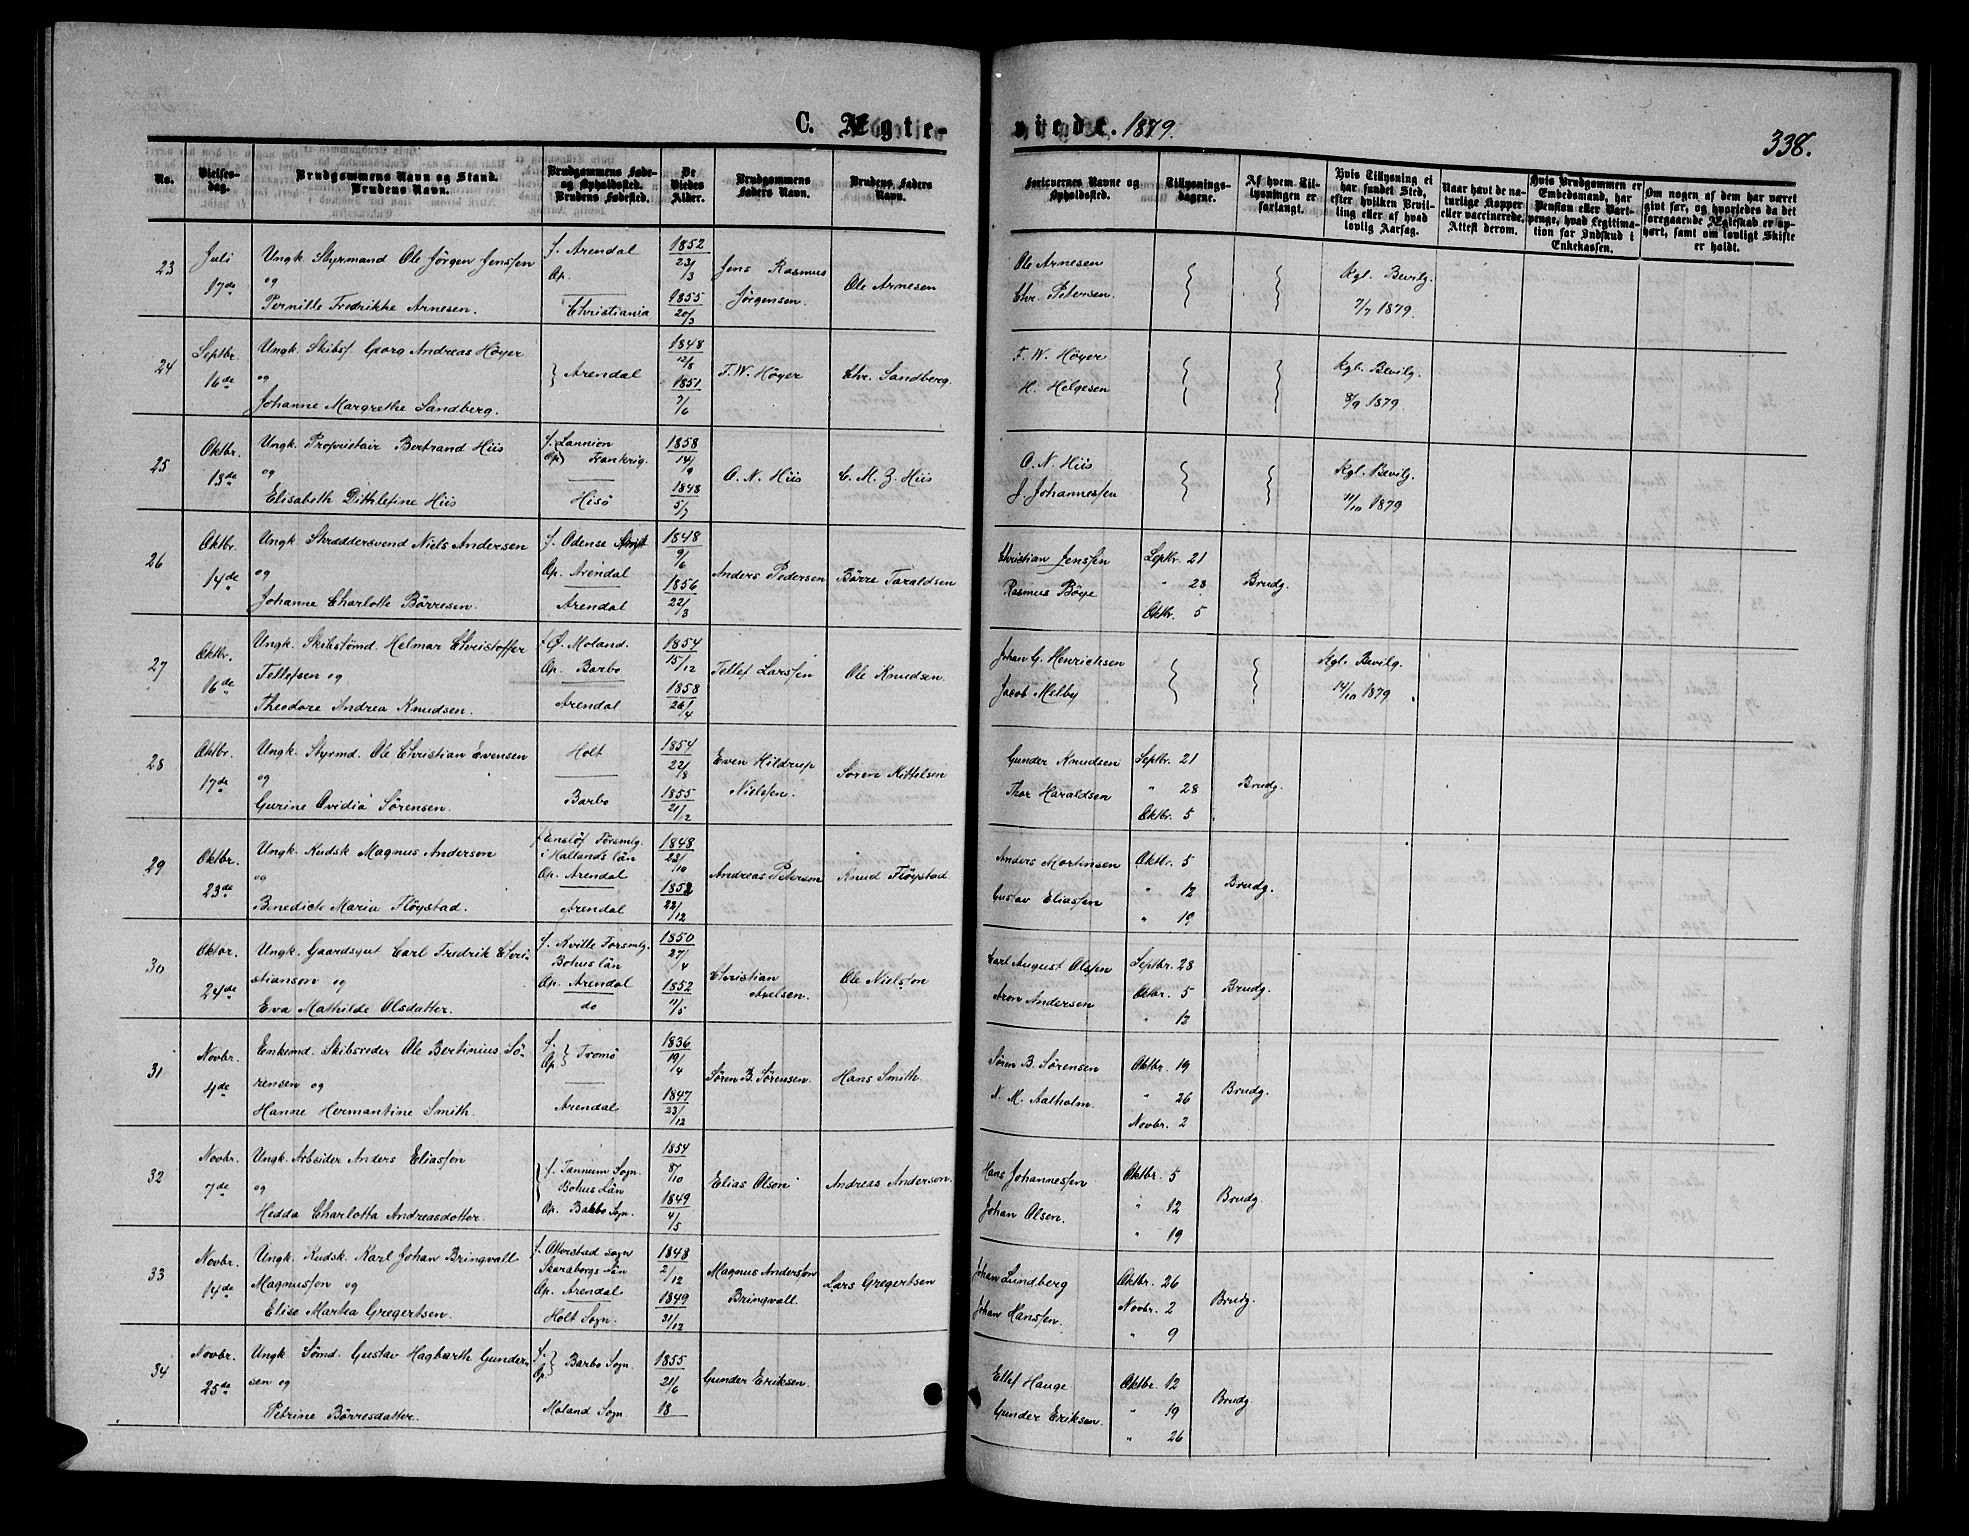 C. Ægte-
viede. 1879.
338.
No.
Vielses-
dag.
Brudgommens Navn og Stand.
Brudens Navn.
Brudgommens Føde-
og Opholdssted.
Brudens Fødested.
De
Viedes
Alder.
Brudgommens
Faders Navn.
Brudens Faders
Navn.
Forlovernes Navne og
Opholdssted.
Tillysnings-
dagene.
Af hvem Til-
lysningen er
forlangt.
Hvis Tillysning ei
har fundet Sted,
efter hvilken Bevil-
ling eller af hvad
lovlig Aarsag.
Naar havt de na-
turlige Kopper
eller vaccinerede.
Attest derom.
Hvis Brudgommen er
Embedsmand, har
Pension eller Vart-
penge, hvad Legitima-
tion for Indskud i
Enkekassen.
Om nogen af dem har været
givt før, og hvorledes da det
foregaaende Ægteskab er op-
hørt, samt om lovligt Skifte
er holdt.
23
Juli
17de
Ungk. Styrmand Ole Jörgen Jensen
og
Pernille Fredrikke Arnesen.
f. Arendal
Op.
Christiania
1852
23/3
1855
20/3
Jens Rasmus
Jörgensen.
Ole Arnesen
Ole Arnesen
Chr. Petersen.
Kgl. Bevilg.
7/7 1879.
24
Septbr.
16de
Ungk. Skibsf. Georg Andreas Höyer
og
Johanne Margrethe Sandberg.
Arendal
1848
12/8
1851
7/6
F. W. Höyer
Chr. Sandberg.
F. W. Höyer
H. Helgesen
Kgl. Bevilg.
8/9 1879.
25
Oktbr.
13de
Ungk. Proprietair Bertrand Hiis
og
Elisabeth Dithlefine Hiis
f. Lannion
Op. Frankrig.
Hisö
1858
14/9
1848
5/7
O. N. Hiis
C. M. Z. Hiis
O. N. Hiis
J. Johannessen
Kgl. Bevilg.
11/10 1879
26
Oktbr.
14de
Ungk. Skræddersvend Niels Andersen
og
Johanne Charlotte Börresen.
f. Odense
Op. Arendal
Arendal
1848
9/6
1856
22/3
Anders Pedersen
Börre Taraldsen
Christian Jensen
Rasmus Böye
Septbr. 21
" 28
Oktbr. 5
Brudg.
27
Oktbr.
16de
Ungk. Skibstømd. Helmar Christoffer
Tellefsen og
Theodore Andrea Knudsen.
f. Ø. Moland.
Op. Barbo
Arendal
1854
15/12
1858
26/4
Tellef Larssen
Ole Knudsen.
Johan G. Henrichsen
Jacob Melby
Kgl. Bevilg.
14/10 1879
28
Oktbr.
17de
Ungk. Styrmd. Ole Christian Evensen
og
Gurine Ovidia Sörensen.
Holt
Barbo
1854
22/8
1855
21/12
Even Hildrup
Nielsen.
Sören Kittelsen
Gunder Knudsen
Thor Haraldsen
Septbr. 21
" 28
Oktbr. 5
Brudg.
29
Oktbr.
23de
Ungk. Kudsk Magnus Anderson
og
Benedicte Maria Flöystad.
f. Enslöf Försmlg.
i Hallands län
Op. Arendal
Arendal
1848
23/10
1852
22/12
Andreas Peterson
Knud Flöystad
Anders Mortensen
Gustav Eliassen
Oktbr. 5
" 12
" 19
Brudg.
30
Oktbr.
24de
Ungk. Gaardsgut Carl Fredrik Chri-
stianson og
Eva Mathilde Olsdatter.
f. Kville Forsmlg.
Bohus län
Op. Arendal
do
1850
27/4
1852
11/5
Christian
Axelsen.
Ole Nielson
Carl August Olsen
Aron Andersen
Septbr. 28
Oktbr. 5
" 13
Brudg.
31
Novbr.
4de
Enkemd. Skibsreder Ole Bertinius Sö-
rensen og
Hanne Hermantine Smith.
f.
Op. Tromö
Arendal
1836
19/4
1847
23/12
Sören B. Sörensen.
Hans Smith.
Sören B. Sörensen
N. M. Aalholm.
Oktbr. 19
" 26
Novbr. 2
Brudg.
32
Novbr.
7de
Ungk. Arbeider Anders Eliasson
og
Hedda Charlotta Andreasdotter.
f. Tannum Sogn.
Bohus Län
Op. Barbo Sogn.
1854
8/10
1849
4/5
Elias Olson
Andreas Anderson.
Hans Johannessen
Johan Olsen.
Oktbr. 5
" 12
" 19
Brudg.
33
Novbr.
14de
Ungk. Kudsk. Karl Johan Bringvall
Magnusson og
Elise Martea Gregertsen.
f. Otterstad sogn
Skaraborgs län
Op. Arendal
Holt Sogn.
1848
2/12
1849
31/12
Magnus Anderson
Bringvall.
Lars Gregertsen
Johan Lundberg
Johan Hanssen.
Oktbr. 26
Novbr. 2
" 9
Brudg.
34
Novbr.
25de
Ungk. Sömd. Gustav Hagbarth Gunder-
sen og
Petrine Börresdatter.
f.
Op. Barbo Sogn.
Moland Sogn
1855
21/6
18
Gunder Eriksen.
Ellef Hauge
Gunder Eriksen.
Oktbr. 12
" 19
" 26
Brudg.